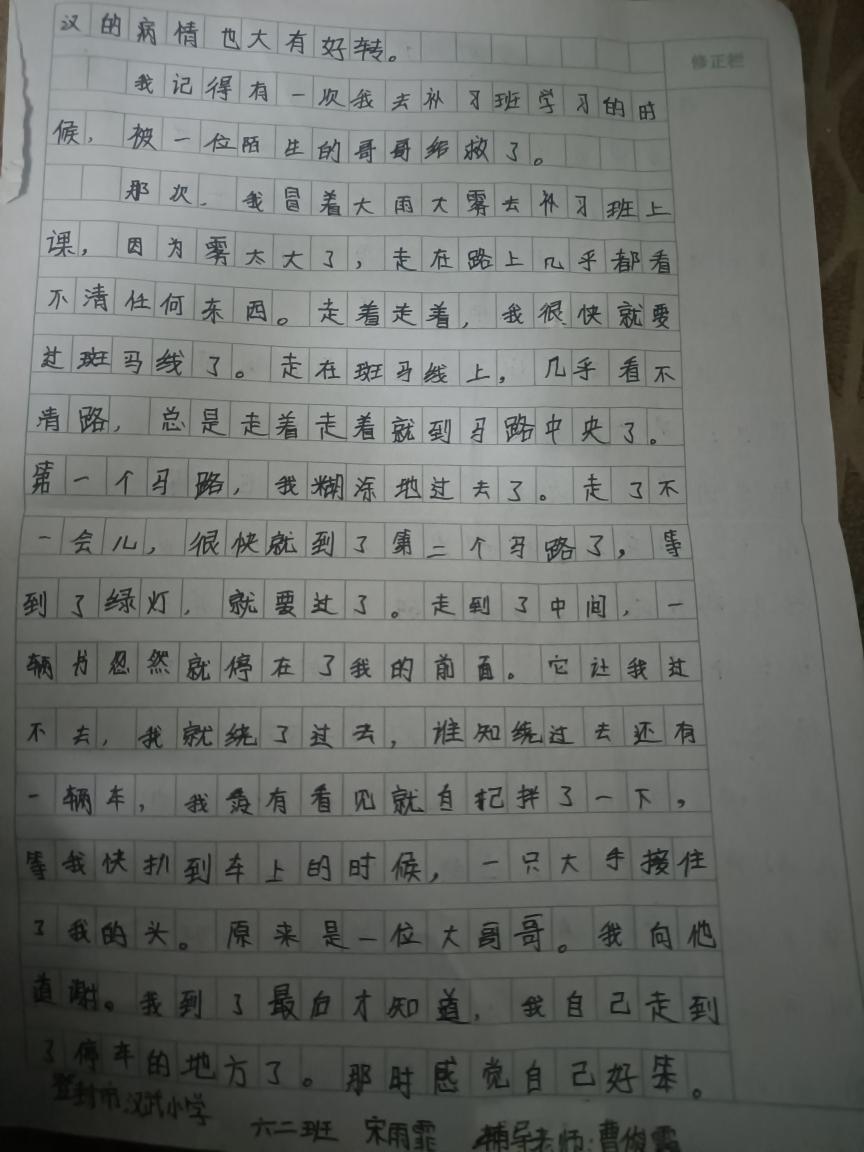 汉的病情也大有好转。
修正栏
我记得有一次我去补习班学习的时
候，被一位陌生的哥哥给救了。
那次，我冒着大雨大雾去补习班上
课，因为雾太大了，走在路上几乎都看
不清任何东西。走着走着，我很快就要
过斑马线了。走在斑马线上，几乎看不
清路，总是走着走着就到马路中央了。
第一个马路，我糊涂地过去了。走了不
一会儿，很快就到了第二个马路了，等
到了绿灯，就要过了。走到了中间，一
辆忽然就停在了我的前面。它让我过
不去，我就绕了过去，谁知绕过去还有
一辆车，我没有看见就自己拌了一下，
等我快扒到车上的时候，一只大手接住
了我的头。原来是一位大哥哥。我向他
道谢。我到了最后才知道，我自己走到
了停车的地方了。那时感觉自己好笨。
登封市汉武小学
六二班 宋雨霏 辅导老师：曹俊霞